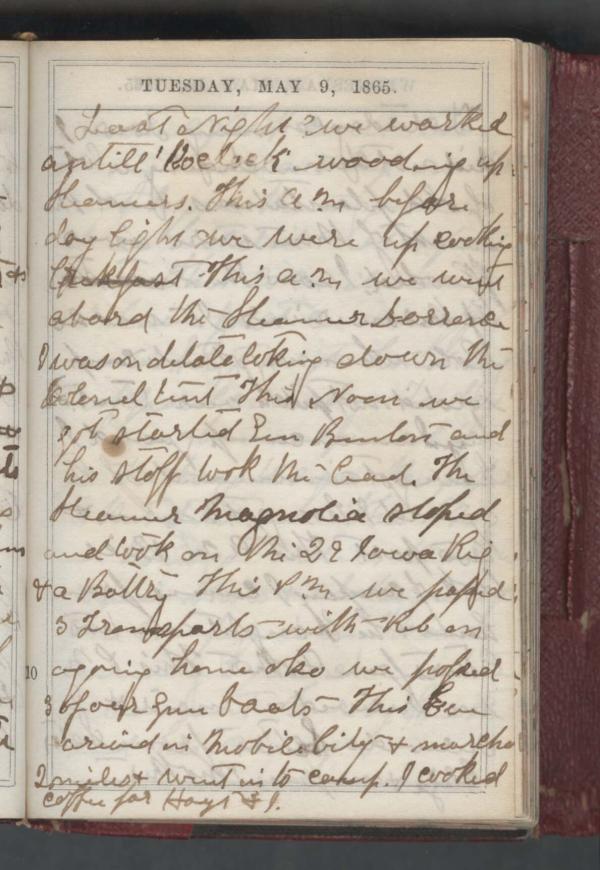 TUESDAY, MAY 9, 1865.
Last Night we worked
untill 12 oclock wooding up
steamers. This a.m before
day light we were up cooking
brekfast This a.m we went
abord the Steamer
I was on detale toking down the
Colonel tent This Noon we
got started Gen and
his stoff took the lead. The
steamer Magnolia stoped
and took on the 29 Iowa Rig
& a Battry This P.m we passed
3 Transports with Reb on
agoing home also we passed
3 of our Gun boats This Eve
arived in Mobile City & marched
2 miles & went in to camp. I cooked
coffee for Hays & I.
10